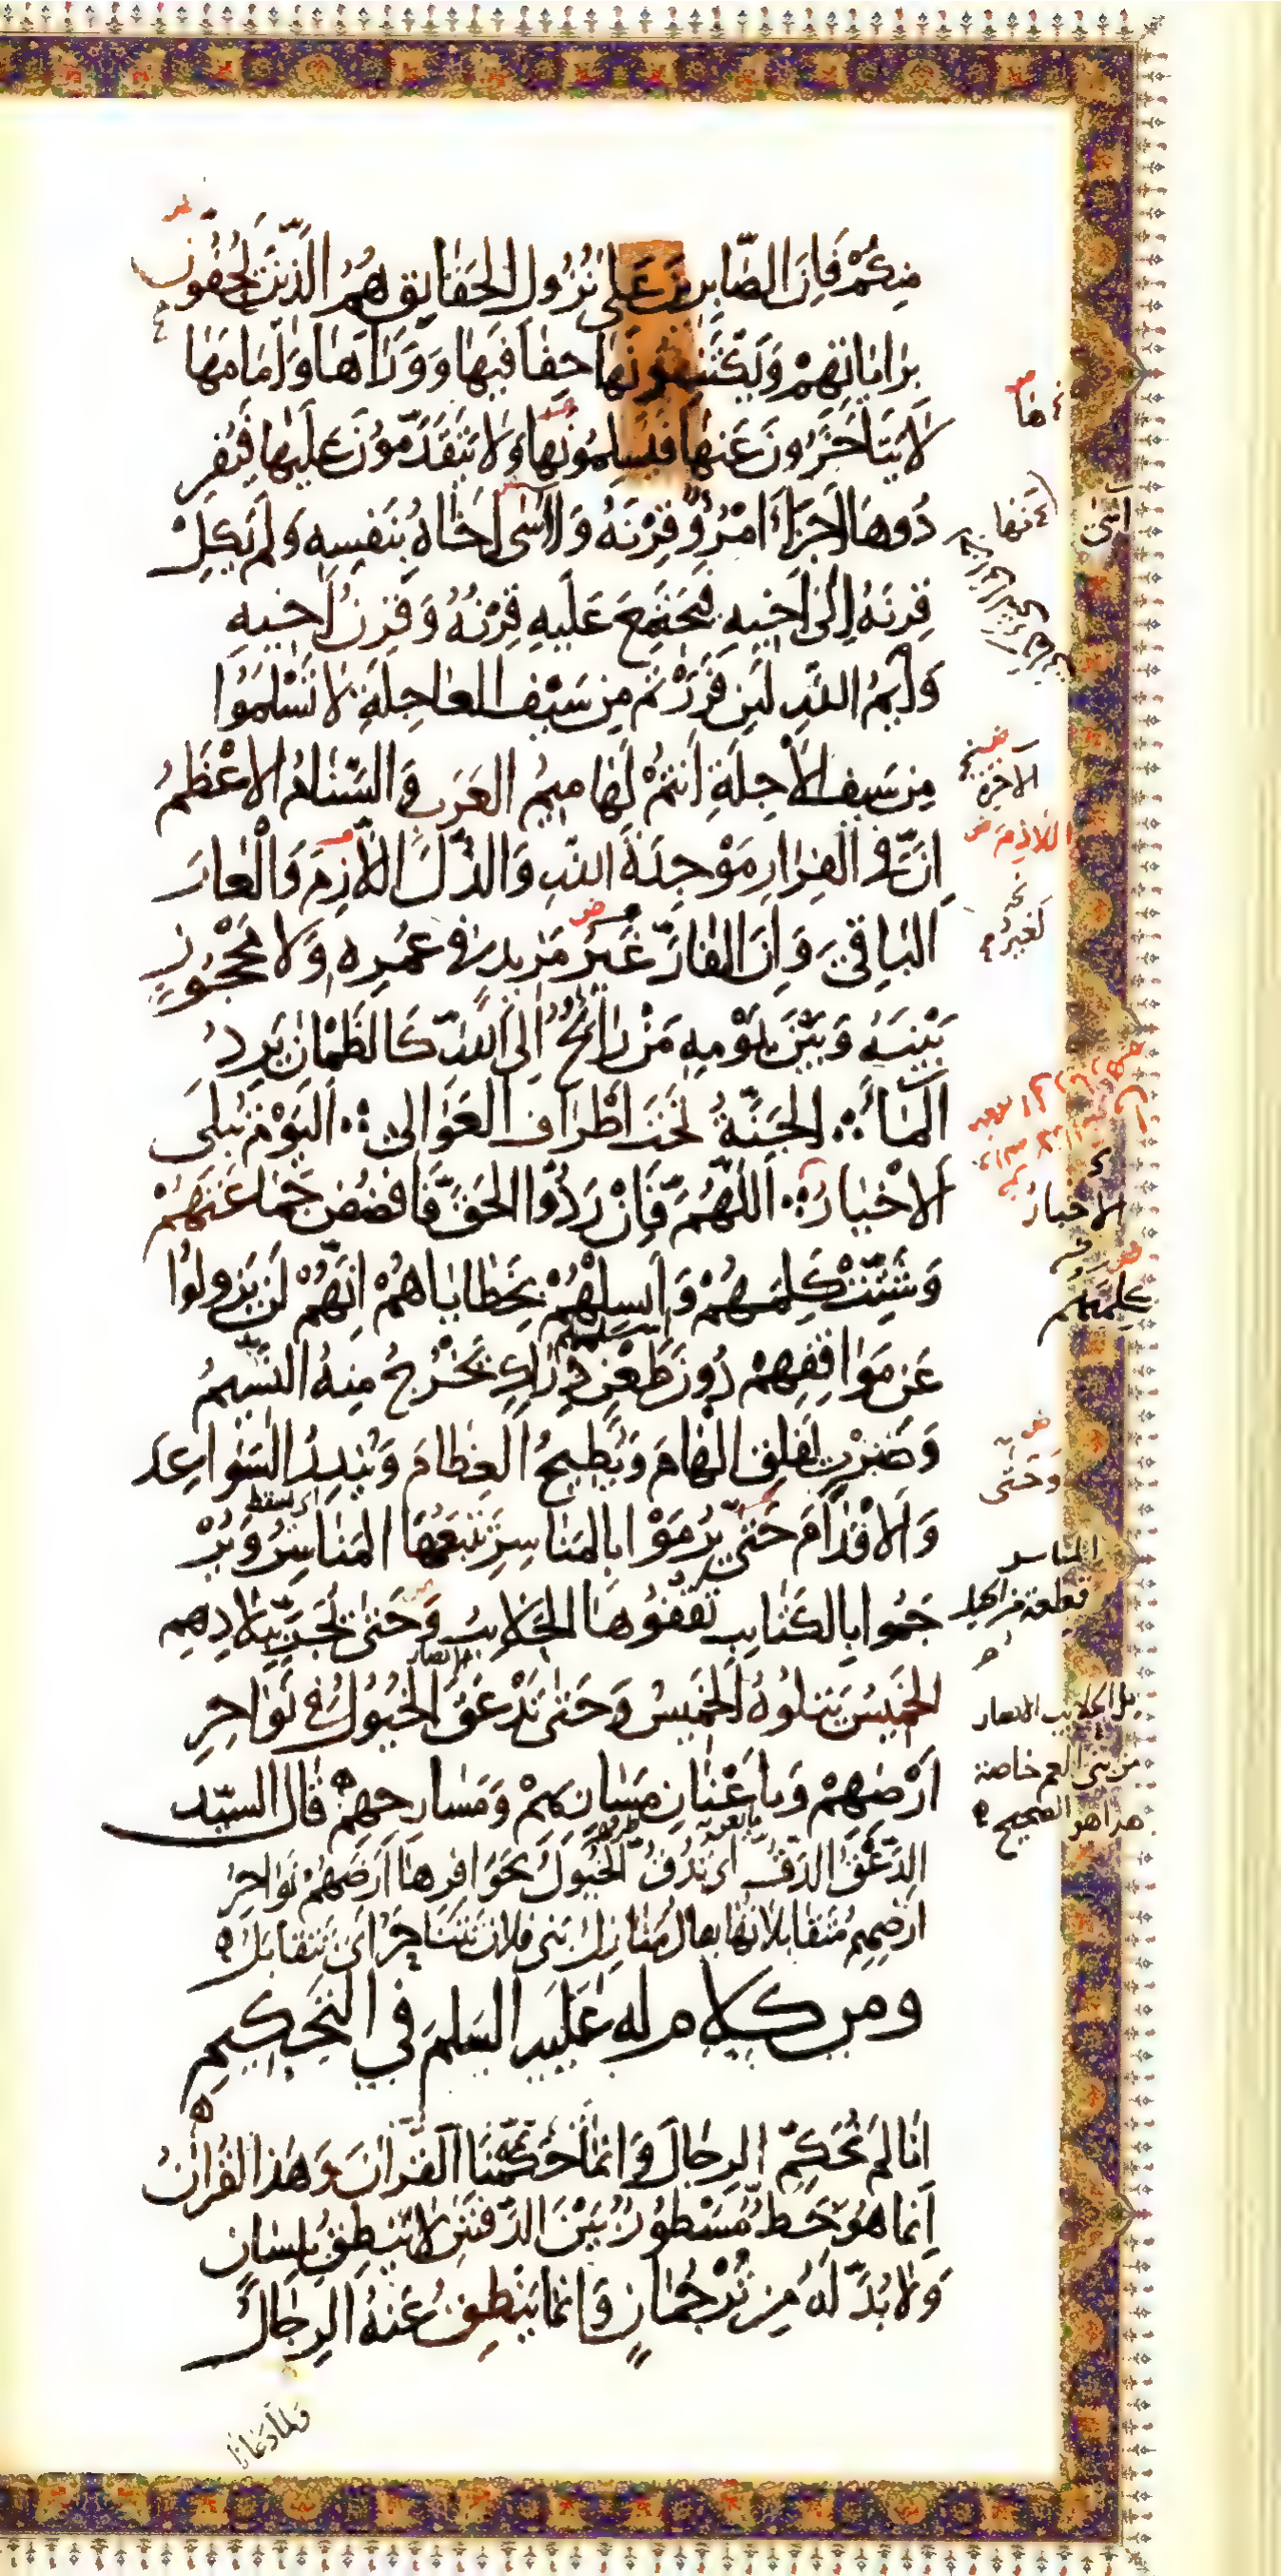 مِنكُمْ فَاِنَّ الصَّابِرِينَ عَلى نُزُولِ الحَقَايِقِ هُمُ الَّذِينَ يَحُفُّونَ
بِرَايَاتِهِمْ وَيَكْتَنِفُونَهَا حِفَافَيْهَا وَوَرَاَهَا وَاَمَامَهَا
لَا يَتَاَخَّرُونَ عَنهَا فَيُسْلِمُونَهَا وَلَا يَتَقَدَّمُونَ عَلَيهَا فَيُفرِ
دُوهَا اَجزَاَ امْرُؤٌ قِرْنَهُ وَاسَى اَخَاهُ بِنَفسِهِ وَلَم يَكِلْ
قِرنَهُ اِلى اَخيِهِ فَيَجتَمِعَ عَلَيهِ قِرْنُهُ وَقِرنُ اَخيِهِ
وَايمُ اللهِ لَئِن فَرَرْتُم مِن سَيْفِ العَاجِلَةِ لَا تَسْلَمُوا
مِن سَيفِ الآجِلَةِ اَنتُمْ لَهَامِيمُ العَرَبِ وَالسَّنَامُ الاَعْظَمُ
اِنَّ فى الفِرَارِ مَوْجِدَةَ اللهِ وَالذُّلَّ اللَّازِمَ وَالْعَارَ
البَاقِىَ وَاِنَّ الفَارَّ غَيْرُ مَزِيدٍ فى عُمُرِهِ وَلَا مَحْجُوزٍ
بَيْنَهُ وَبَيْنَ يَوْمِهِ مَنْ رَائِحٌ اِلى اللهِ كَالظَّمْآنِ يَرِدُ
المَاءَ الجَنَّةُ تَحْتَ اَطْرَافِ العَوَالِى اليَوْمَ تُبلَى
الاَخْبَارُ اَللّهُمَّ فَاِنْ رَدُّوا الحَقَّ فَافضُض جَمَاعَتَهُمْ
وَشَتِّتْ كَلِمَتَهُمْ وَاَبسِلْهُمْ بِخَطَايَاهُمْ اِنَّهُمْ لَن يَزُولُوا
عَن مَوَاقِفِهِم دُونَ طَعْنٍ دِرَاكٍ يَخْرُجُ مِنهُ النَّسِيمُ
وَضَرْبٍ يَفلِقُ الْهَامَ وَيُطيِحُ العِظَامَ وَيُندِرُ السَّوَاعِدَ
وَالاَقْدَامَ حَتَّى يُرْمَوْا بِالمَنَاسِرِ تَتبَعُهَا المَنَاسِرُ وَيُرْ
جَمُوا بِالكَتَايِبِ تَقفُوهَا الحَلَايبُ وَحَتى يُجَرَّ بِبِلَادِهِم
الخَمِيسُ يَتلُوهُ الخَمِيسُ وَحَتى تَدْعَقَ الخُيُولُ فى نَوَاحِرِ
اَرْضِهِمْ وَبِاَعْنَانِ مَسَارِبِهِمْ وَمَسَارِحِهِمْ قَالَ السيّد
الدَّعْقُ الدَّقُّ اَى تَدُقُّ الخُيُولُ بِحَوَافِرِهَا اَرضَهُمْ نَوَاحِرُ
ارضِهِم مُتَقَابِلَاتُهَا يقال مَنَازِلُ بَنى فلان تَتَنَاحَرُ اَى تَتَقَابَلُ
ومن كلام له عَلَيهِ السَّلم في التَّحكِيمِ
اِنَّا لَم نُحَكِّمِ الرِجَالَ وَاِنَّمَا حَكَّمْنَا القُرآنَ وَهَذا القُرآنُ
اِنَّمَا هُوَ خَطٌّ مَسْطُورٌ بَيْنَ الدَّفَّتَيْنِ لَا يَنطِقُ بِلِسَانٍ
وَلَا بُدَّ لَهُ مِن تَرْجُمَانٍ وَاِنَّمَا يَنطِقُ عَنهُ الرِجَالُ
وَلَمَّا دَعَانَا
الآخرة
اللازم
الاخبار
كلمتهم
وَحَتَّى
المناسر
قطعة من الخيل
من بنى العم خاصة
هذا هو الصحيح